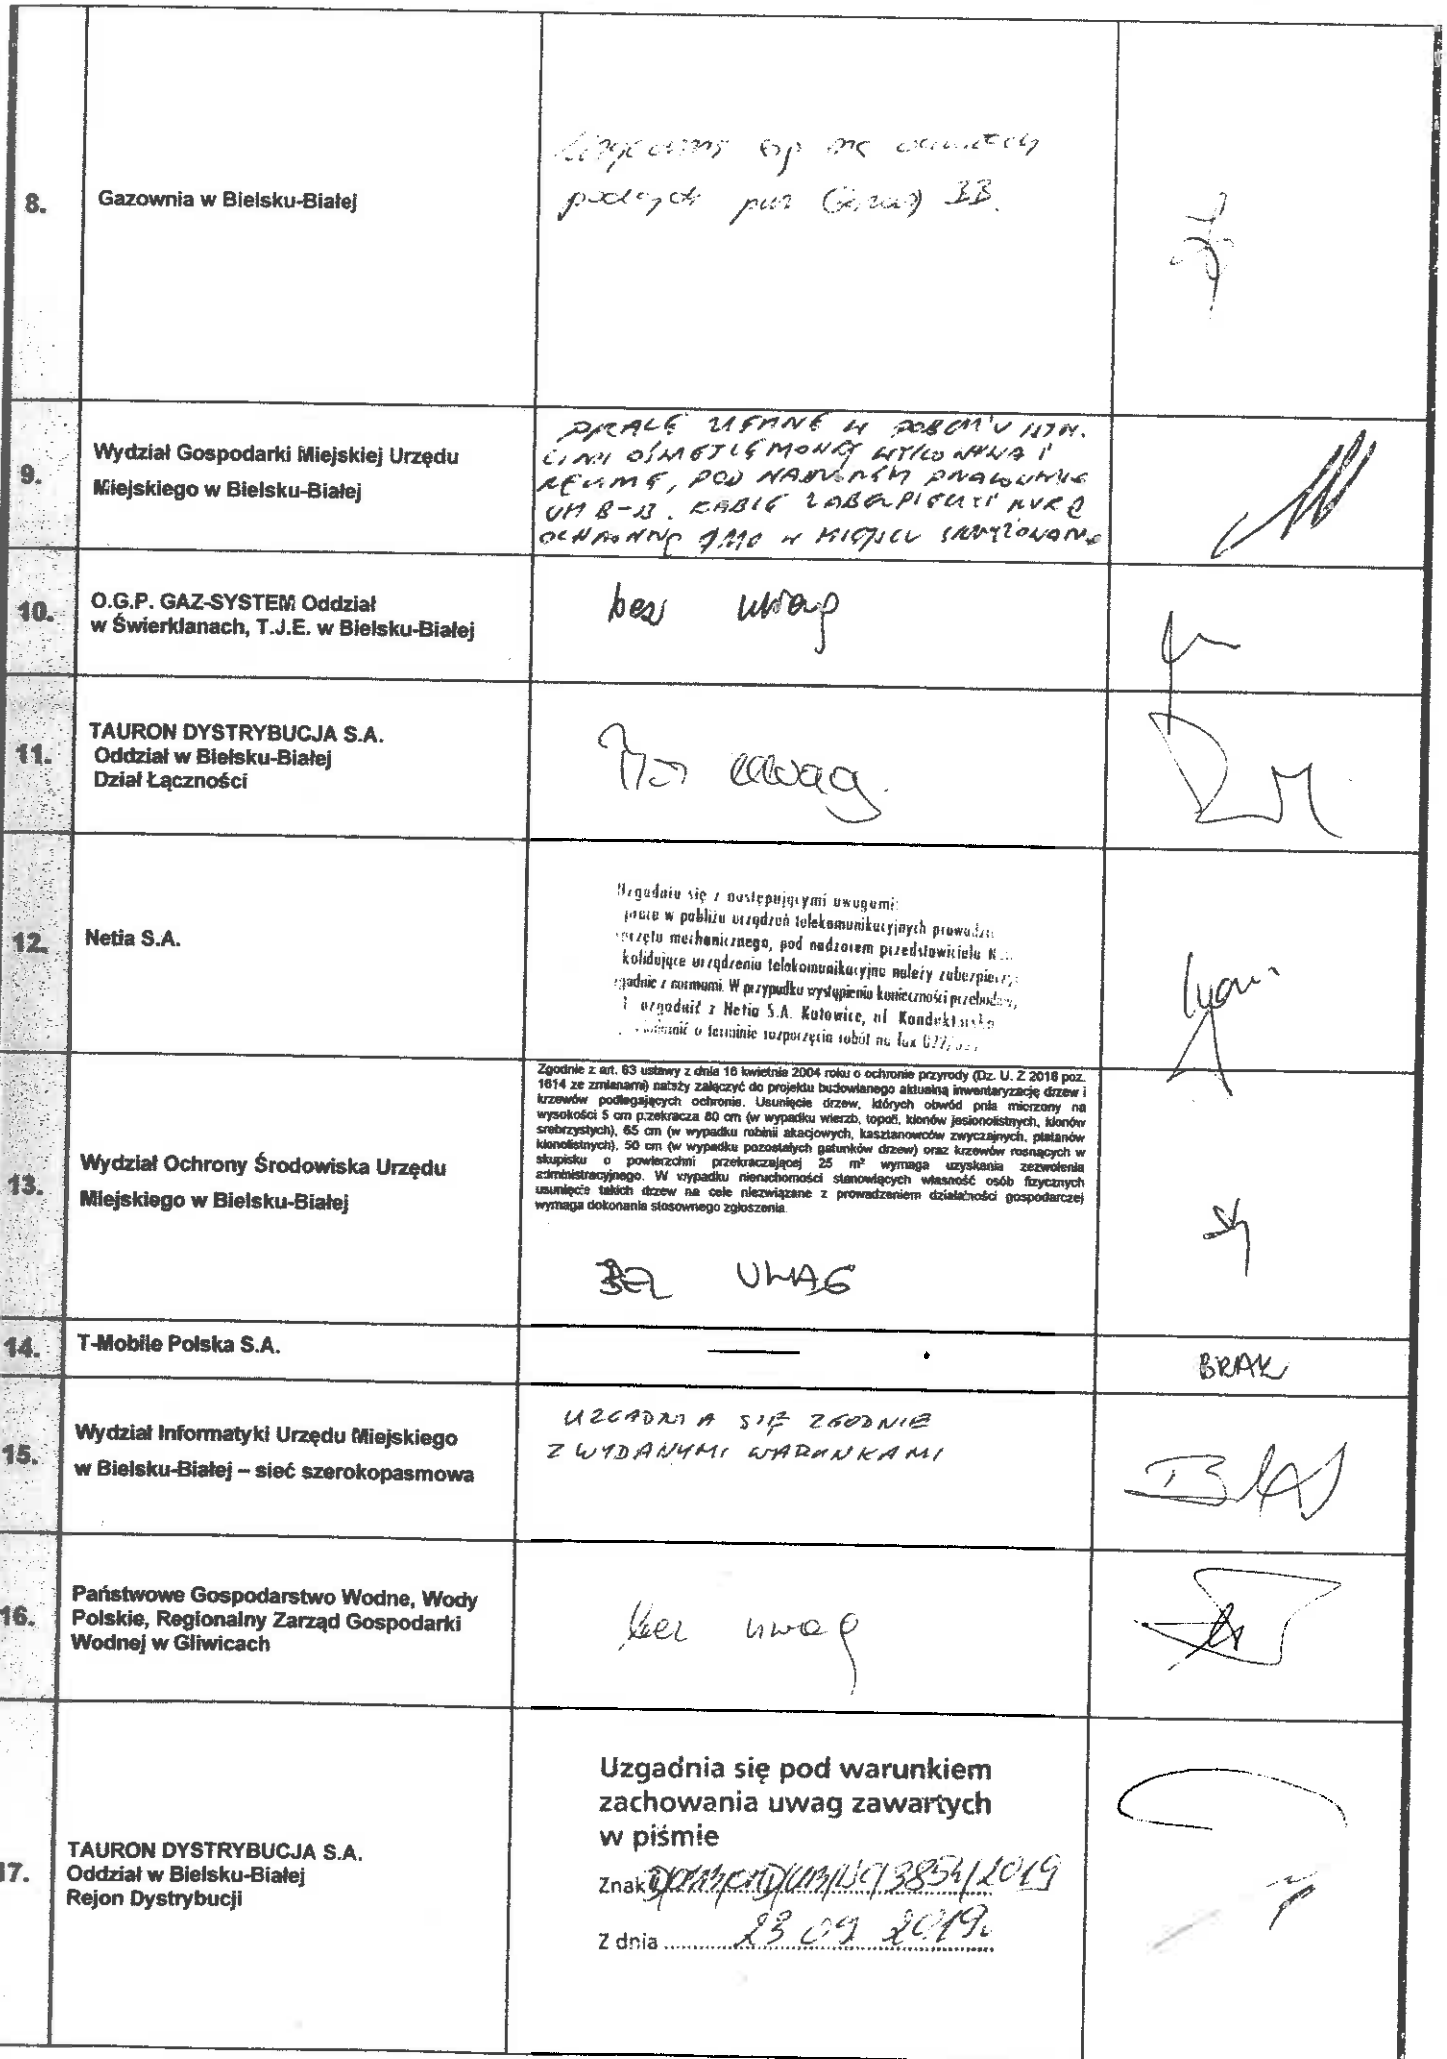 8.
Gazownia w Bielsku-Białej
BB.
9.
Wydział Gospodarki Miejskiej Urzędu
Miejskiego w Bielsku-Białej
UM B-B. KABLE ZABEZPIECZYĆ RURĄ
OCHRONNĄ W MIEJSCU
10.
O.G.P. GAZ-SYSTEM Oddział
w Świerklanach, T.J.E. w Bielsku-Białej
bez uwag
11.
TAURON DYSTRYBUCJA S.A.
Oddział w Bielsku-Białej
Dział Łączności
uwag
12.
Netia S.A.
Uzgadnia się z następującymi uwagami:
prace w pobliżu urządzeń telekomunikacyjnych
mechanicznego, pod nadzorem przedstawiciela
kolidujące urządzenia telekomunikacyjne należy
z normami. W przypadku wystąpienia konieczności
uzgodnić z Netia S.A. Katowice, ul.
o terminie rozpoczęcia robót na fax
13.
Wydział Ochrony Środowiska Urzędu
Miejskiego w Bielsku-Białej
Zgodnie z art. 83 ustawy z dnia 16 kwietnia 2004 roku o ochronie przyrody (Dz. U. Z 2018 poz.
1614 ze zmianami) należy załączyć do projektu budowlanego aktualną inwentaryzację drzew i
krzewów podlegających ochronie. Usunięcie drzew, których obwód pnia mierzony na
wysokości 5 cm przekracza 80 cm (w wypadku wierzb, topoli, klonów jesionolistnych, klonów
srebrzystych), 65 cm (w wypadku robinii akacjowych, kasztanowców zwyczajnych, platanów
klonolistnych), 50 cm (w wypadku pozostałych gatunków drzew) oraz krzewów rosnących w
skupisku o powierzchni przekraczającej 25 m² wymaga uzyskania zezwolenia
administracyjnego. W wypadku nieruchomości stanowiących własność osób fizycznych
usunięcie takich drzew na cele niezwiązane z prowadzeniem działalności gospodarczej
wymaga dokonania stosownego zgłoszenia.
BEZ UWAG
14.
T-Mobile Polska S.A.
BRAK
15.
Wydział Informatyki Urzędu Miejskiego
w Bielsku-Białej – sieć szerokopasmowa
UZGADNIA SIĘ ZGODNIE
Z WYDANYMI WARUNKAMI
16.
Państwowe Gospodarstwo Wodne, Wody
Polskie, Regionalny Zarząd Gospodarki
Wodnej w Gliwicach
bez uwag
17.
TAURON DYSTRYBUCJA S.A.
Oddział w Bielsku-Białej
Rejon Dystrybucji
Uzgadnia się pod warunkiem
zachowania uwag zawartych
w piśmie
Znak
Z dnia 23 09 2019